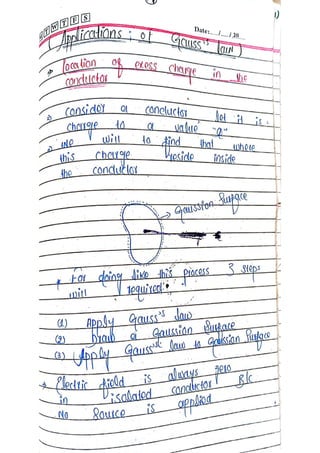 NOTES
Date: / / 20
(Applications: of Gauss's law)
Location of exess charge in the
conductor
Consider a conductor let it is
charge to a value "q"
we will to find that where
this charge reside inside
the conductor
Gaussian Surface
* For doing like this process 3 steps
will required:
(1) Apply Gauss's law
(2) Draw a Gaussian Surface
(3) Apply Gauss's law to Gaussian Surface
Electric field is always zero
in isolated conductor B/c
No Source is applied